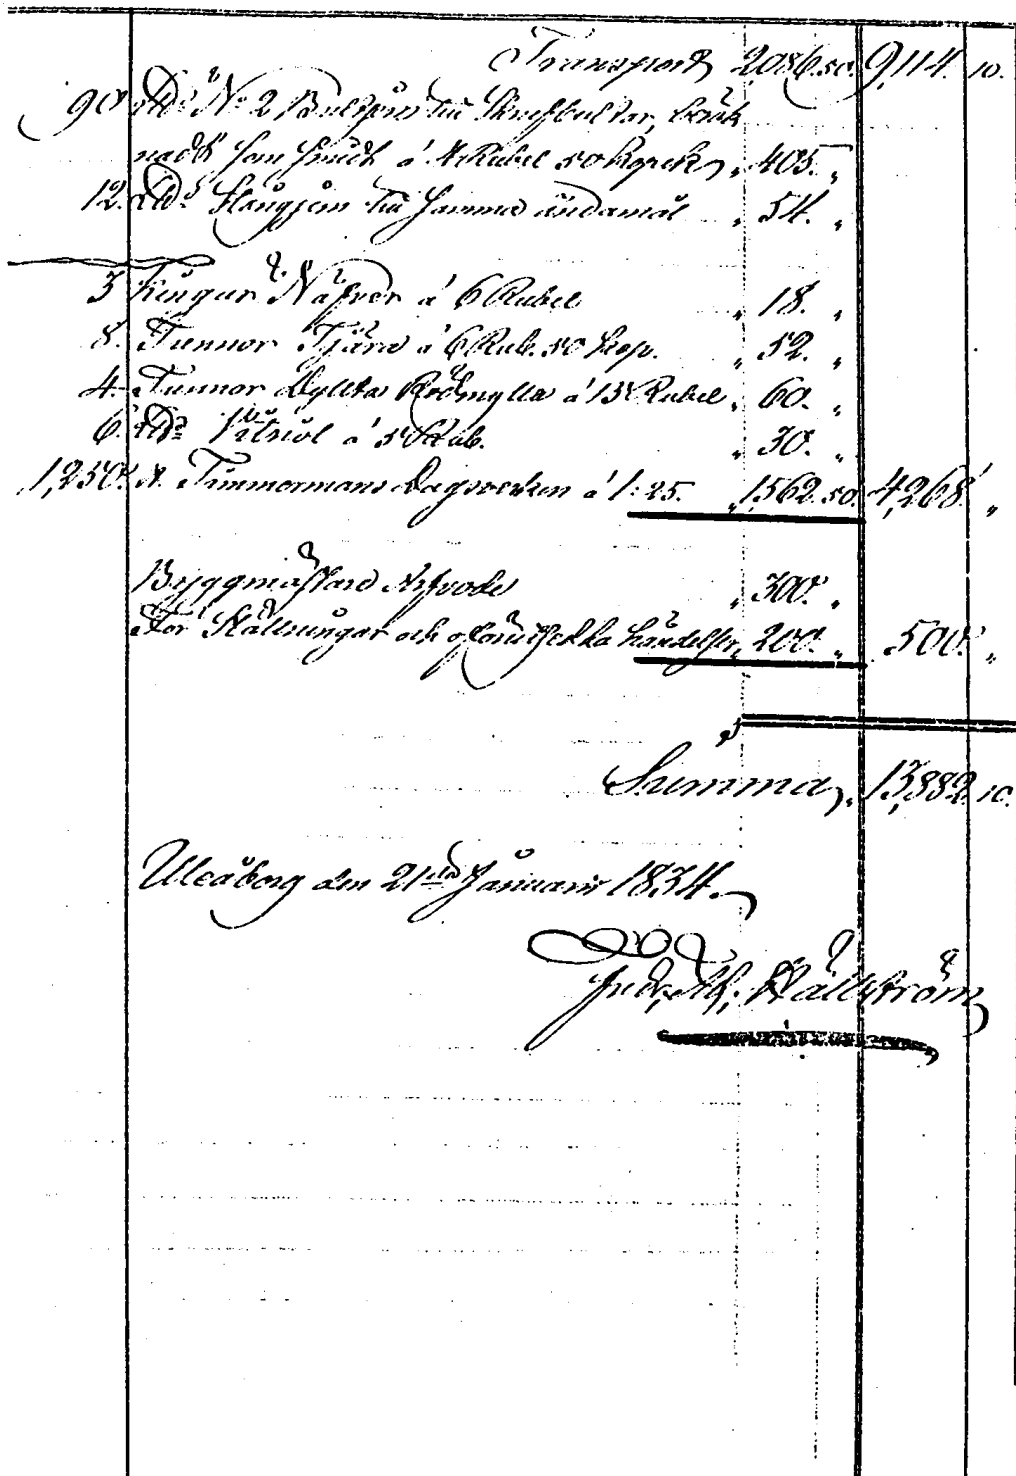 Transport 2,086.50. 9,114. 10.
90 Lb: No 2, Bultjern till Skrufbultar, beräk
nadt som smidt á 4 Rubel 50 Kopek, „ 405. „
12. Lb: Stångjern till samma ändamål „ 54. „
3 Kingar Näfver á 6 Rubel „ 18. „
8. Tunnor Tjära á 6 Rub. 50 Kop. „ 52. „
4. Tunnor Rödmylla á 15 Rubel „ 60. „
6. Lb: Vitriol á 5 Rub. „ 30. „
1,250. st. Timmermans Dagsverken á 1: 25. „ 1,562. 50. 4,268. „
Byggmästare Arfvode „ 300. „
För Ställningar och oförutsedda händelser „ 200. „ 500. „
Summa, „ 13,882. 10.
Uleåborg den 21 Januarii 1834.
Hällström